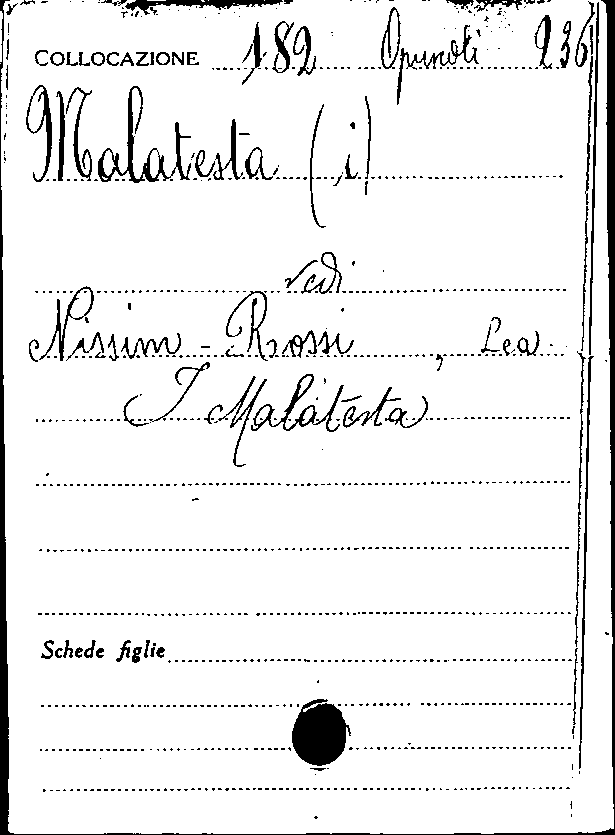 COLLOCAZIONE 182 Opuscoli 236
Malatesta (i)
vedi
Nissim - Rossi, Lea
I Malatesta
Schede figlie